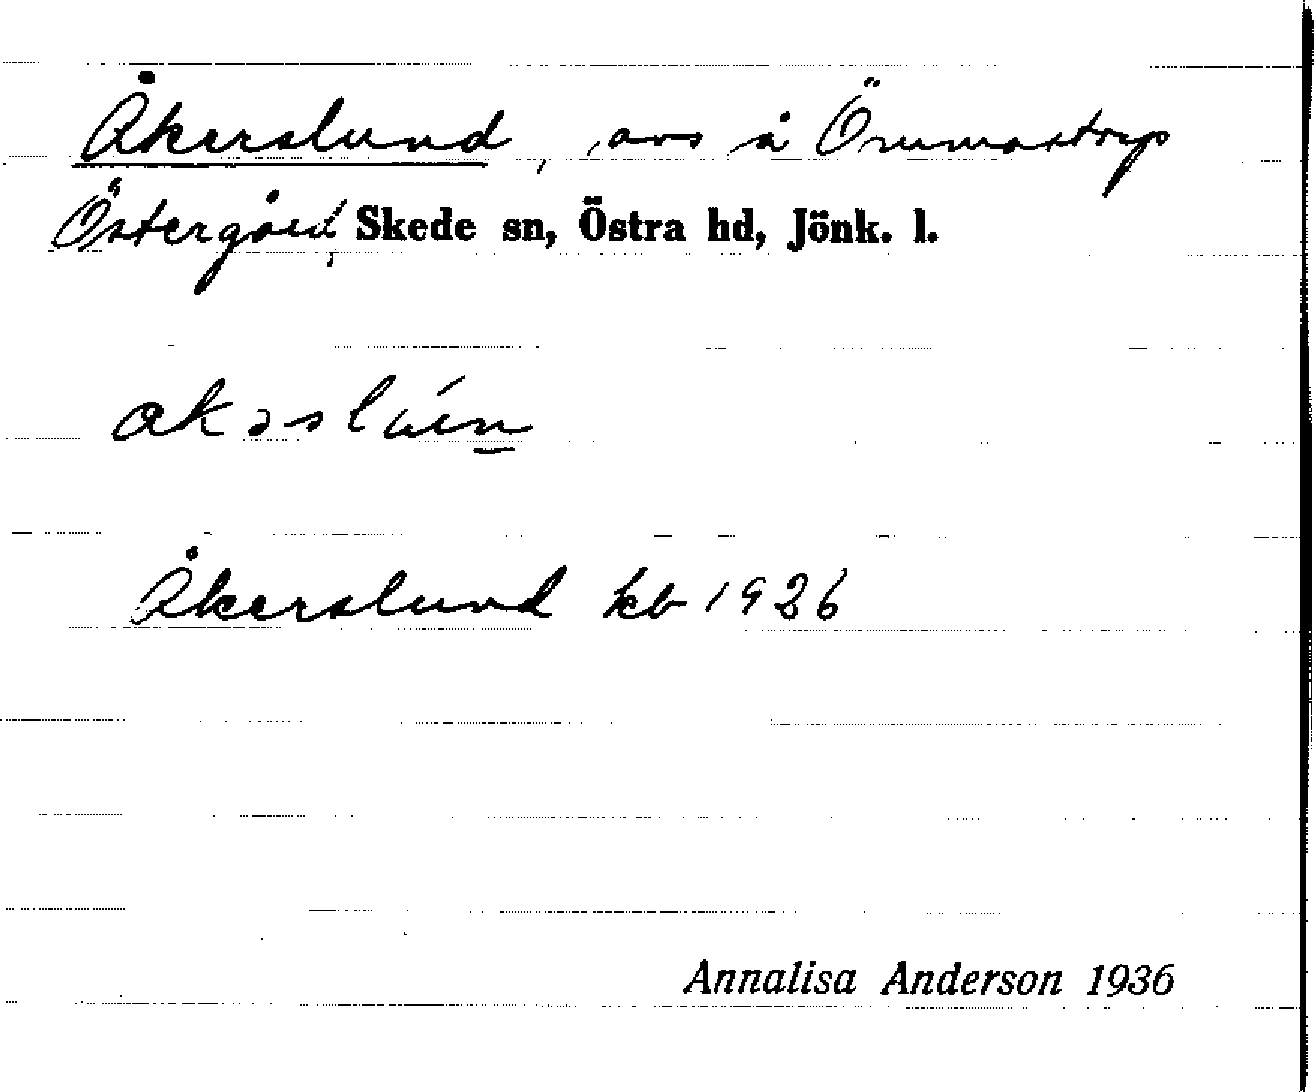 Åkerslund, avs å Örumastorp
Östergård, Skede sn, Östra hd, Jönk. l.
Åkerslund kb 1926
Annalisa Anderson 1936